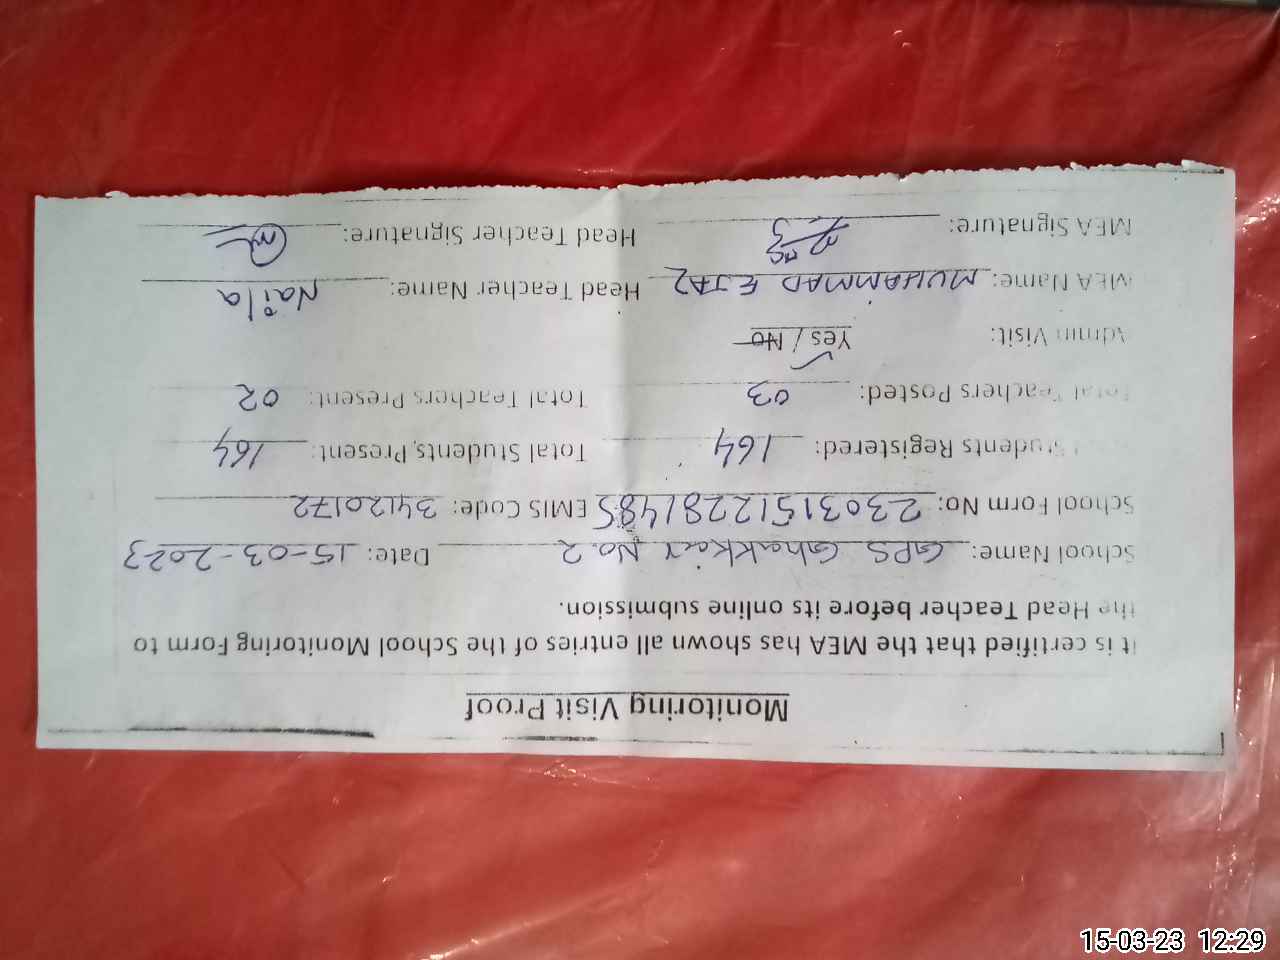 Monitoring Visit Proof
It is certified that the MEA has shown all entries of the School Monitoring Form to
the Head Teacher before its online submission.
School Name: GPS Ghakkar No.2 Date: 15-03-2023
School Form No: 23031512281485 EMIS Code: 34120172
Students Registered: 164 Total Students Present: 164
Total Teachers Posted: 03 Total Teachers Present: 02
Admin Visit: Yes / No
MEA Name: MUHAMMAD EJAZ Head Teacher Name: Naila
MEA Signature: Head Teacher Signature:
15-03-23 12:29